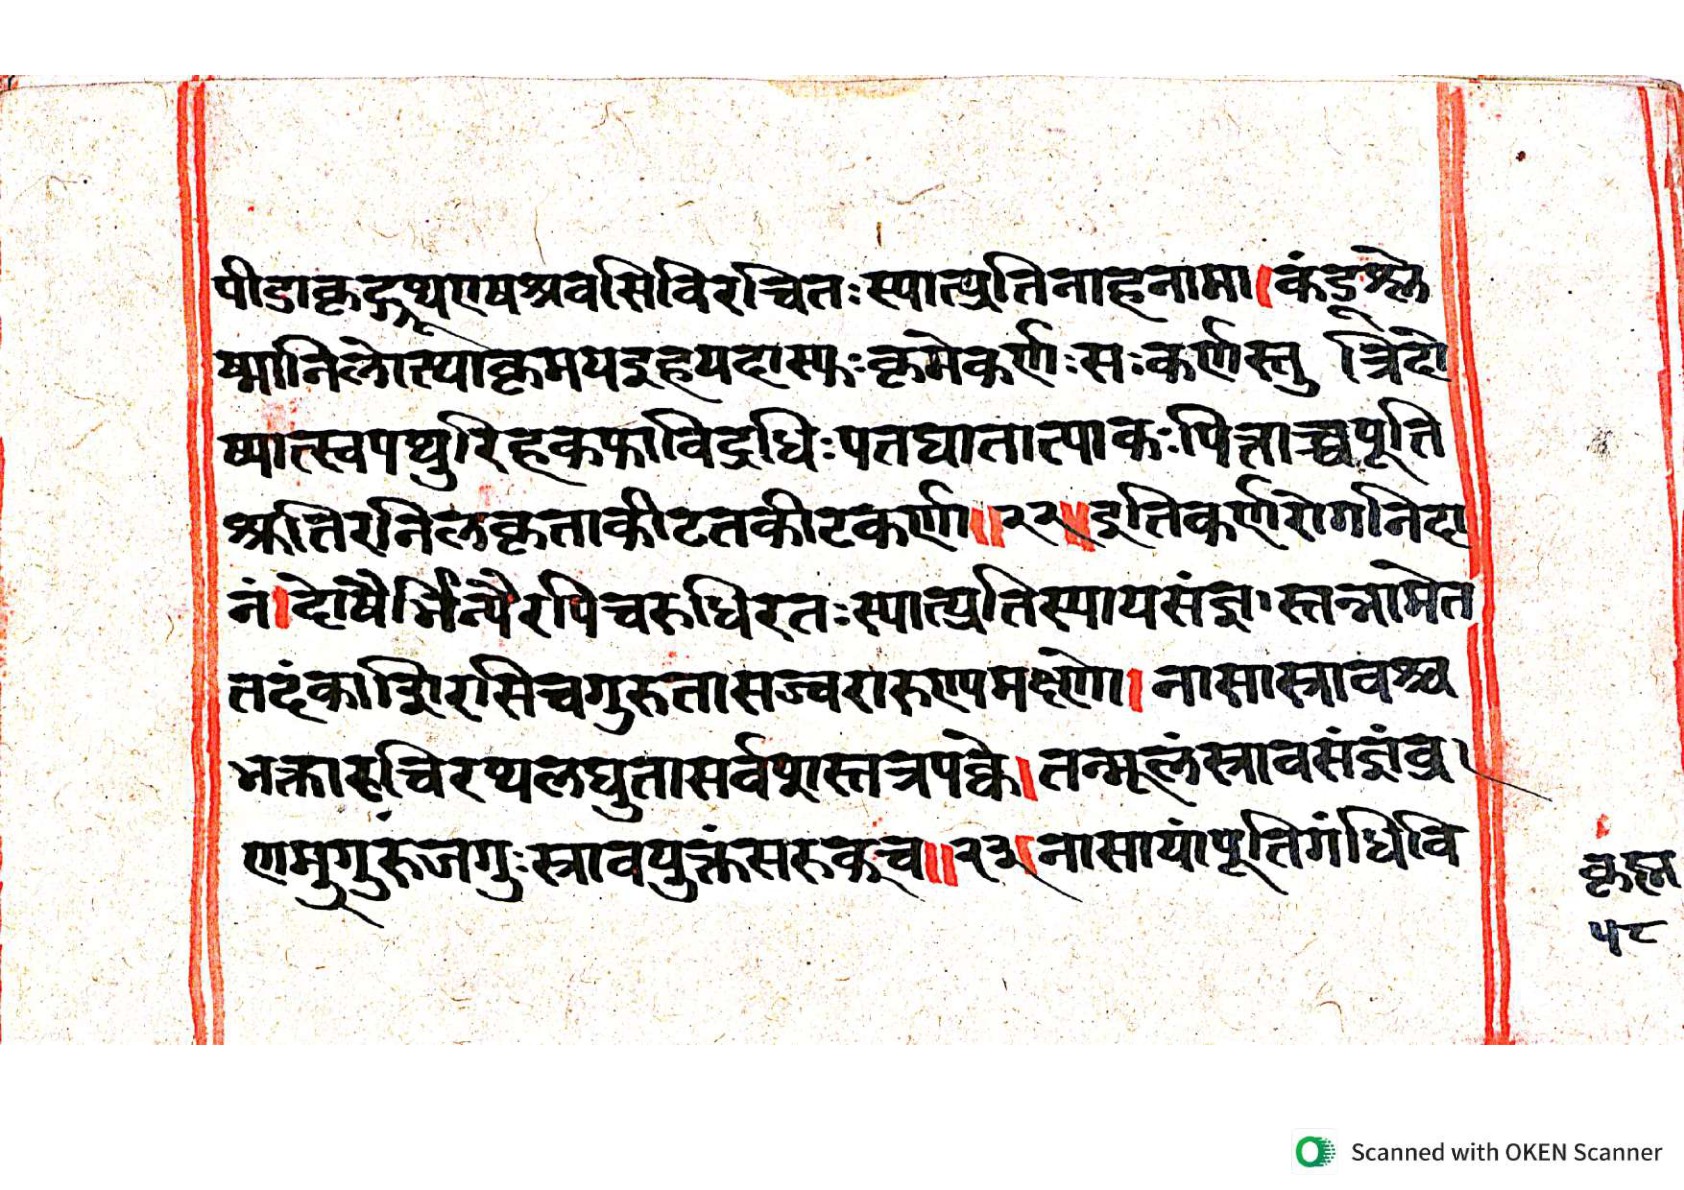 पीडाकृद्गूथएषश्रवसिविरचितःस्यात्प्रतिनाहनामा।कंडूश्ले
ष्मानिलोत्थाकृमयइहयदास्फःकृमेकर्णःसःकर्णस्तु त्रिदो
ष्यात्स्वपथुरिहकफाविद्रधिःपतघातात्पाकःपित्ताच्चपूति
श्रुतिरनिलकृताकीटतकीटकर्णी॥२२॥इतिकर्णरोगनिदा
नं।दोषैर्भिन्यैरपिचरुधिरतःस्यात्प्रतिस्यायसंज्ञास्तन्नामेत
तदंकाशिरसिचगुरुतासज्वरारुण्यमक्ष्णो।नासास्त्रावश्च
भक्तारुचिरथलघुतासर्वशस्तत्रपक्वे।तन्मूलंस्त्रावसंज्ञंव्र
णमुगुरुंजगुःस्त्रावयुक्तंसरुक्च॥२३॥नासायांपूतिगंधिवि
५८
Scanned with OKEN Scanner